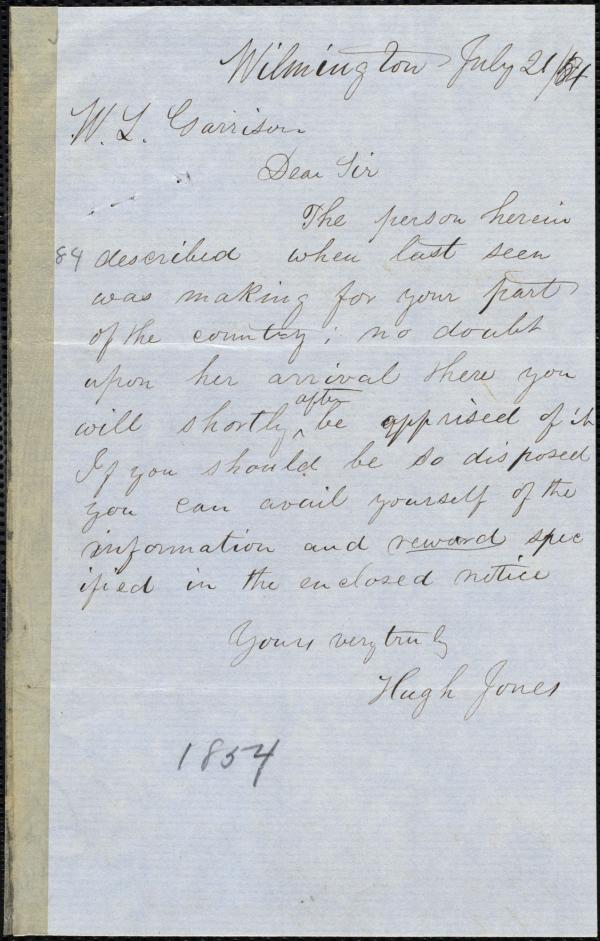 Wilmington July 21/54
W. L. Garrison
Dear Sir
The person herein
84
described when last seen
was making for your part
of the country; no doubt
upon her arrival there you
after
will shortly ^ be apprised of it
If you should be so disposed
you can avail yourself of the
information and reward spec
ified in the enclosed notice
Yours very truly
Hugh Jones
1854